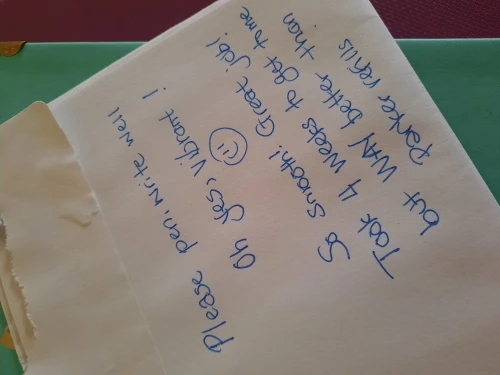 Please pen, write well
Oh yes, vibrant!
So smooth! Great job!
Took 4 weeks to get to me
but WAY better than
Parker refills